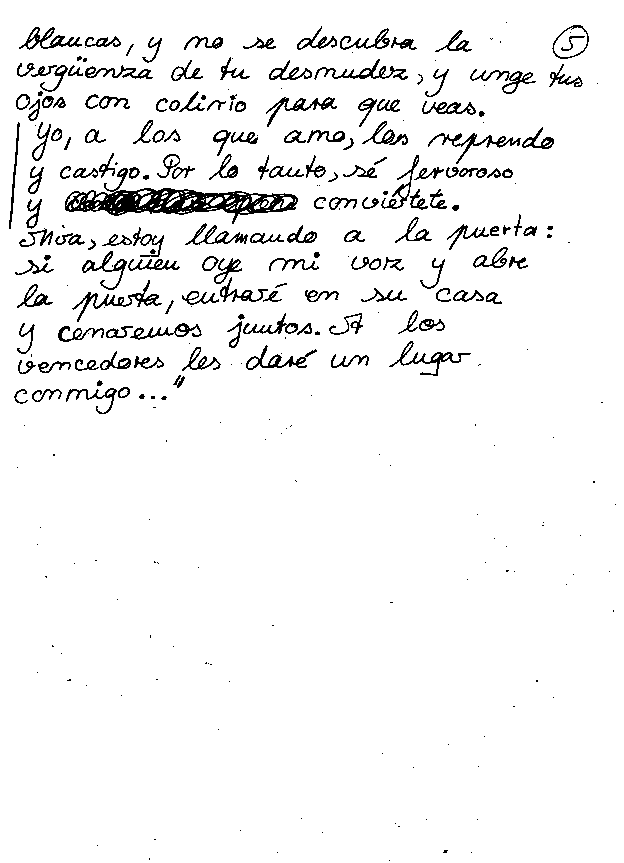 blancas, y no se descubra la
5
vergüenza de tu desnudez, y unge tus
ojos con colirio para que veas.
Yo, a los que amo, los reprendo
y castigo. Por lo tanto, sé fervoroso
y conviértete.
Mira, estoy llamando a la puerta:
si alguien oye mi voz y abre
la puerta, entraré en su casa
y cenaremos juntos. A los
vencedores les daré un lugar
conmigo..."